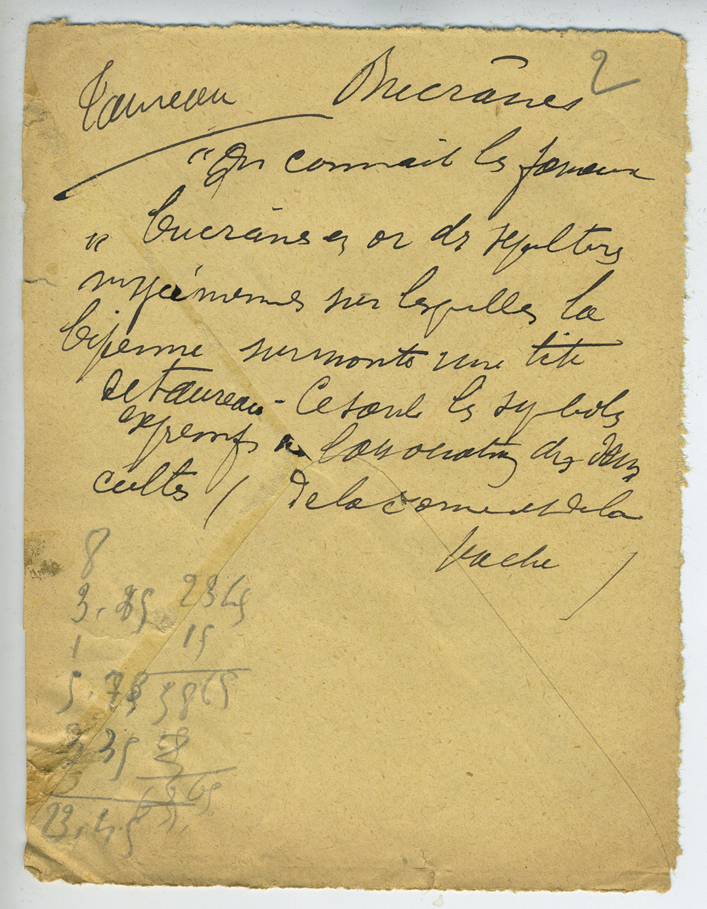 2
Taureau Bucrânes
"On connait les fameux
" bucrânes en or des sépultures
mycéniennes sur lesquelles la
bipenne surmonte une tête
de taureau - Ce sont les symboles
expressifs de l'association des deux
cultes / de la corne et de la
vache /
8
3,85 2365
1 15
5,75 3865